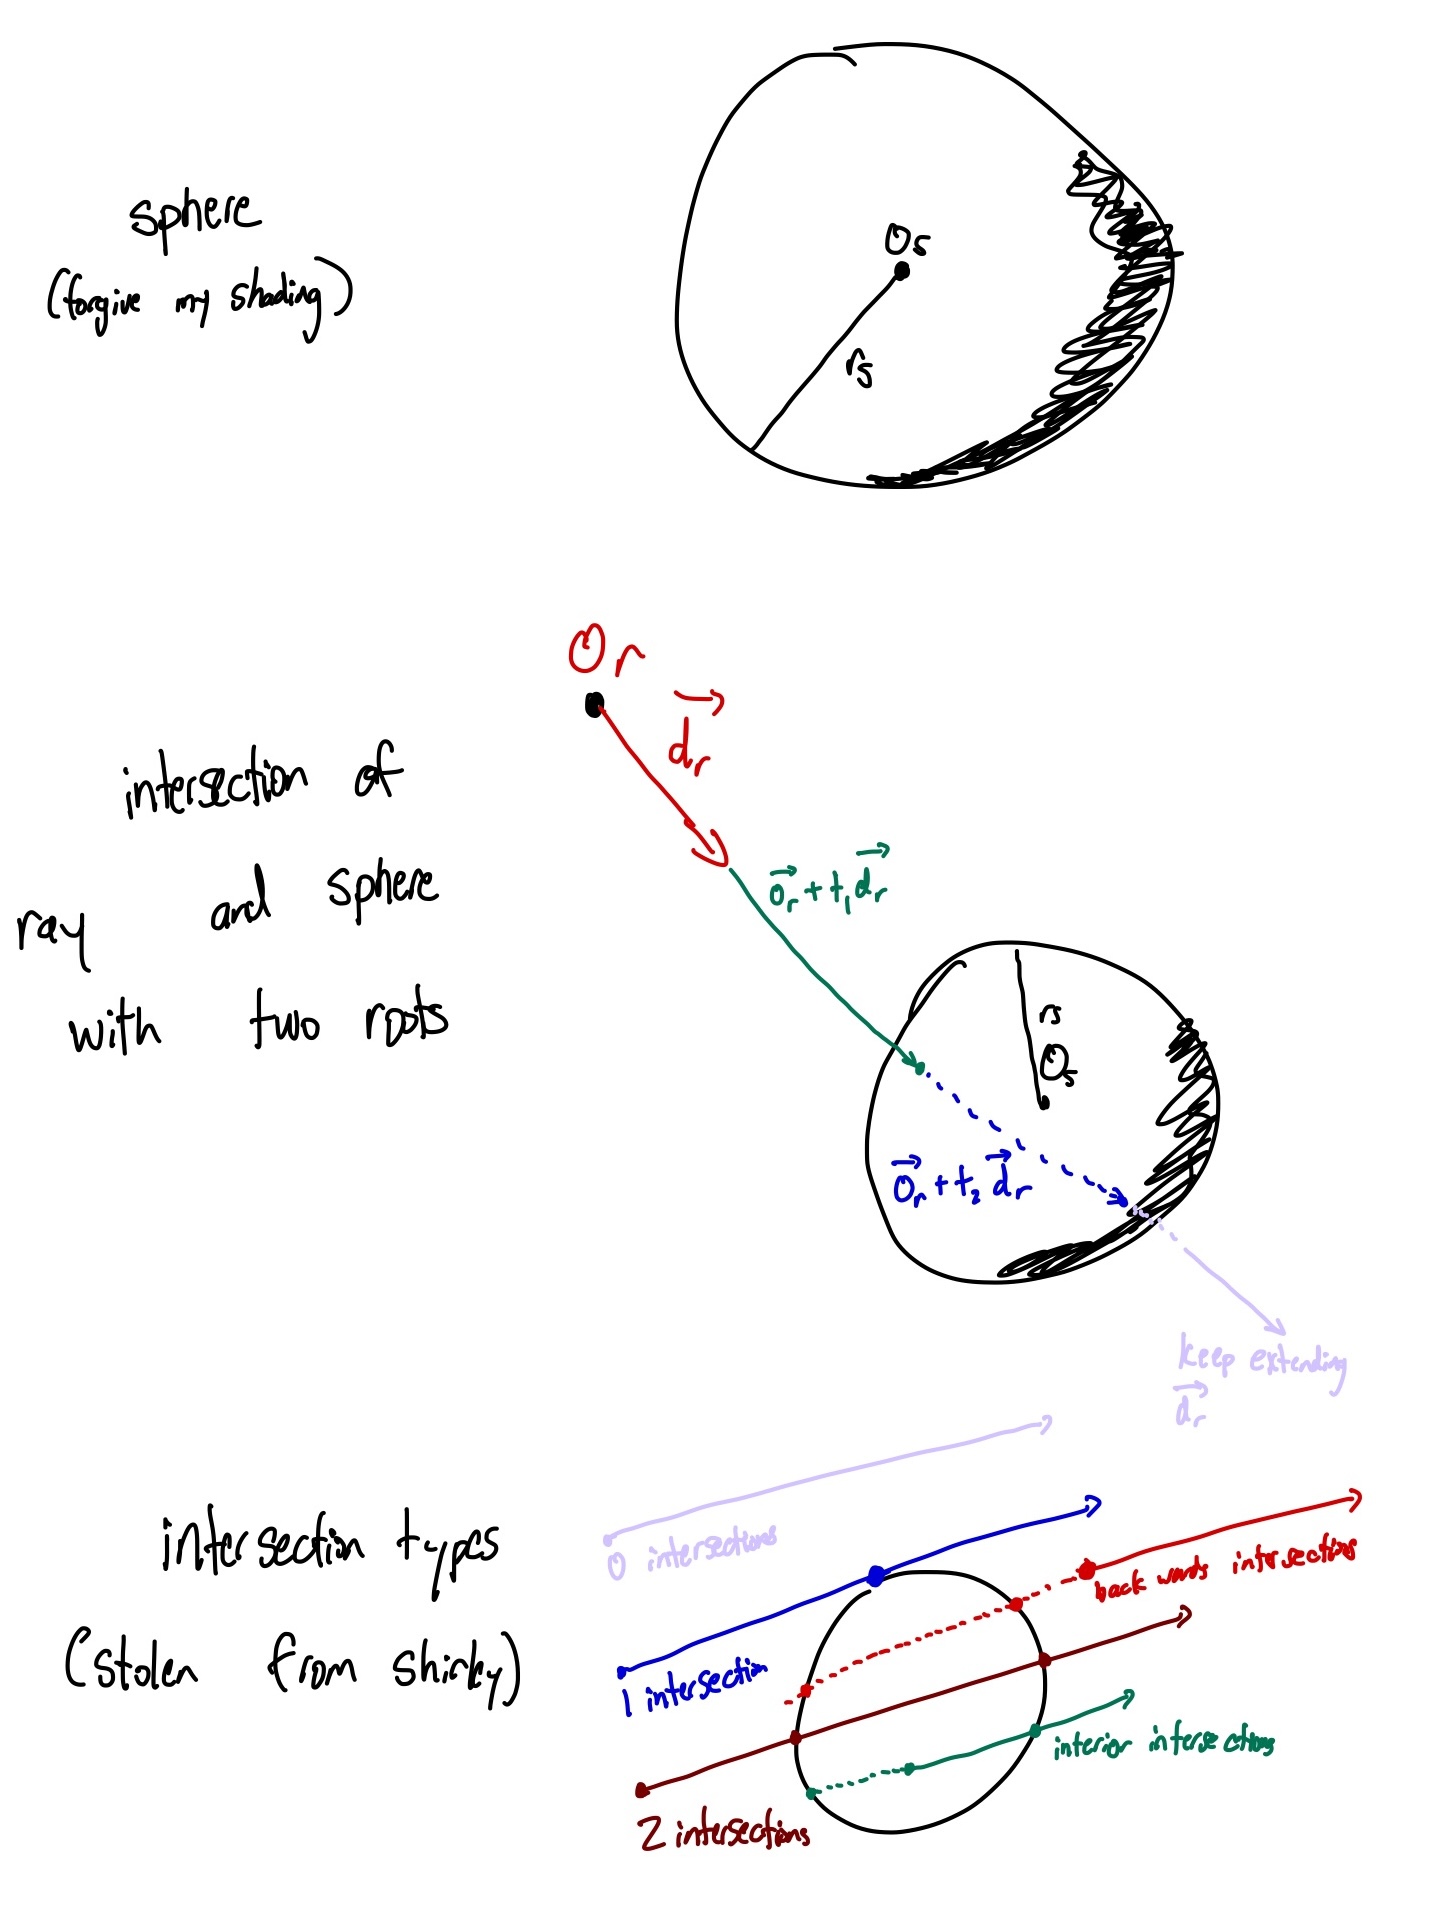 sphere
(forgive my shading)
Os
rs
Or
dr
intersection of
ray and sphere
with two roots
or + t1 dr
rs
Os
or + t2 dr
keep extending
dr
intersection types
(stolen from shirley)
0 intersections
1 intersection
back wards intersections
interior intersections
2 intersections